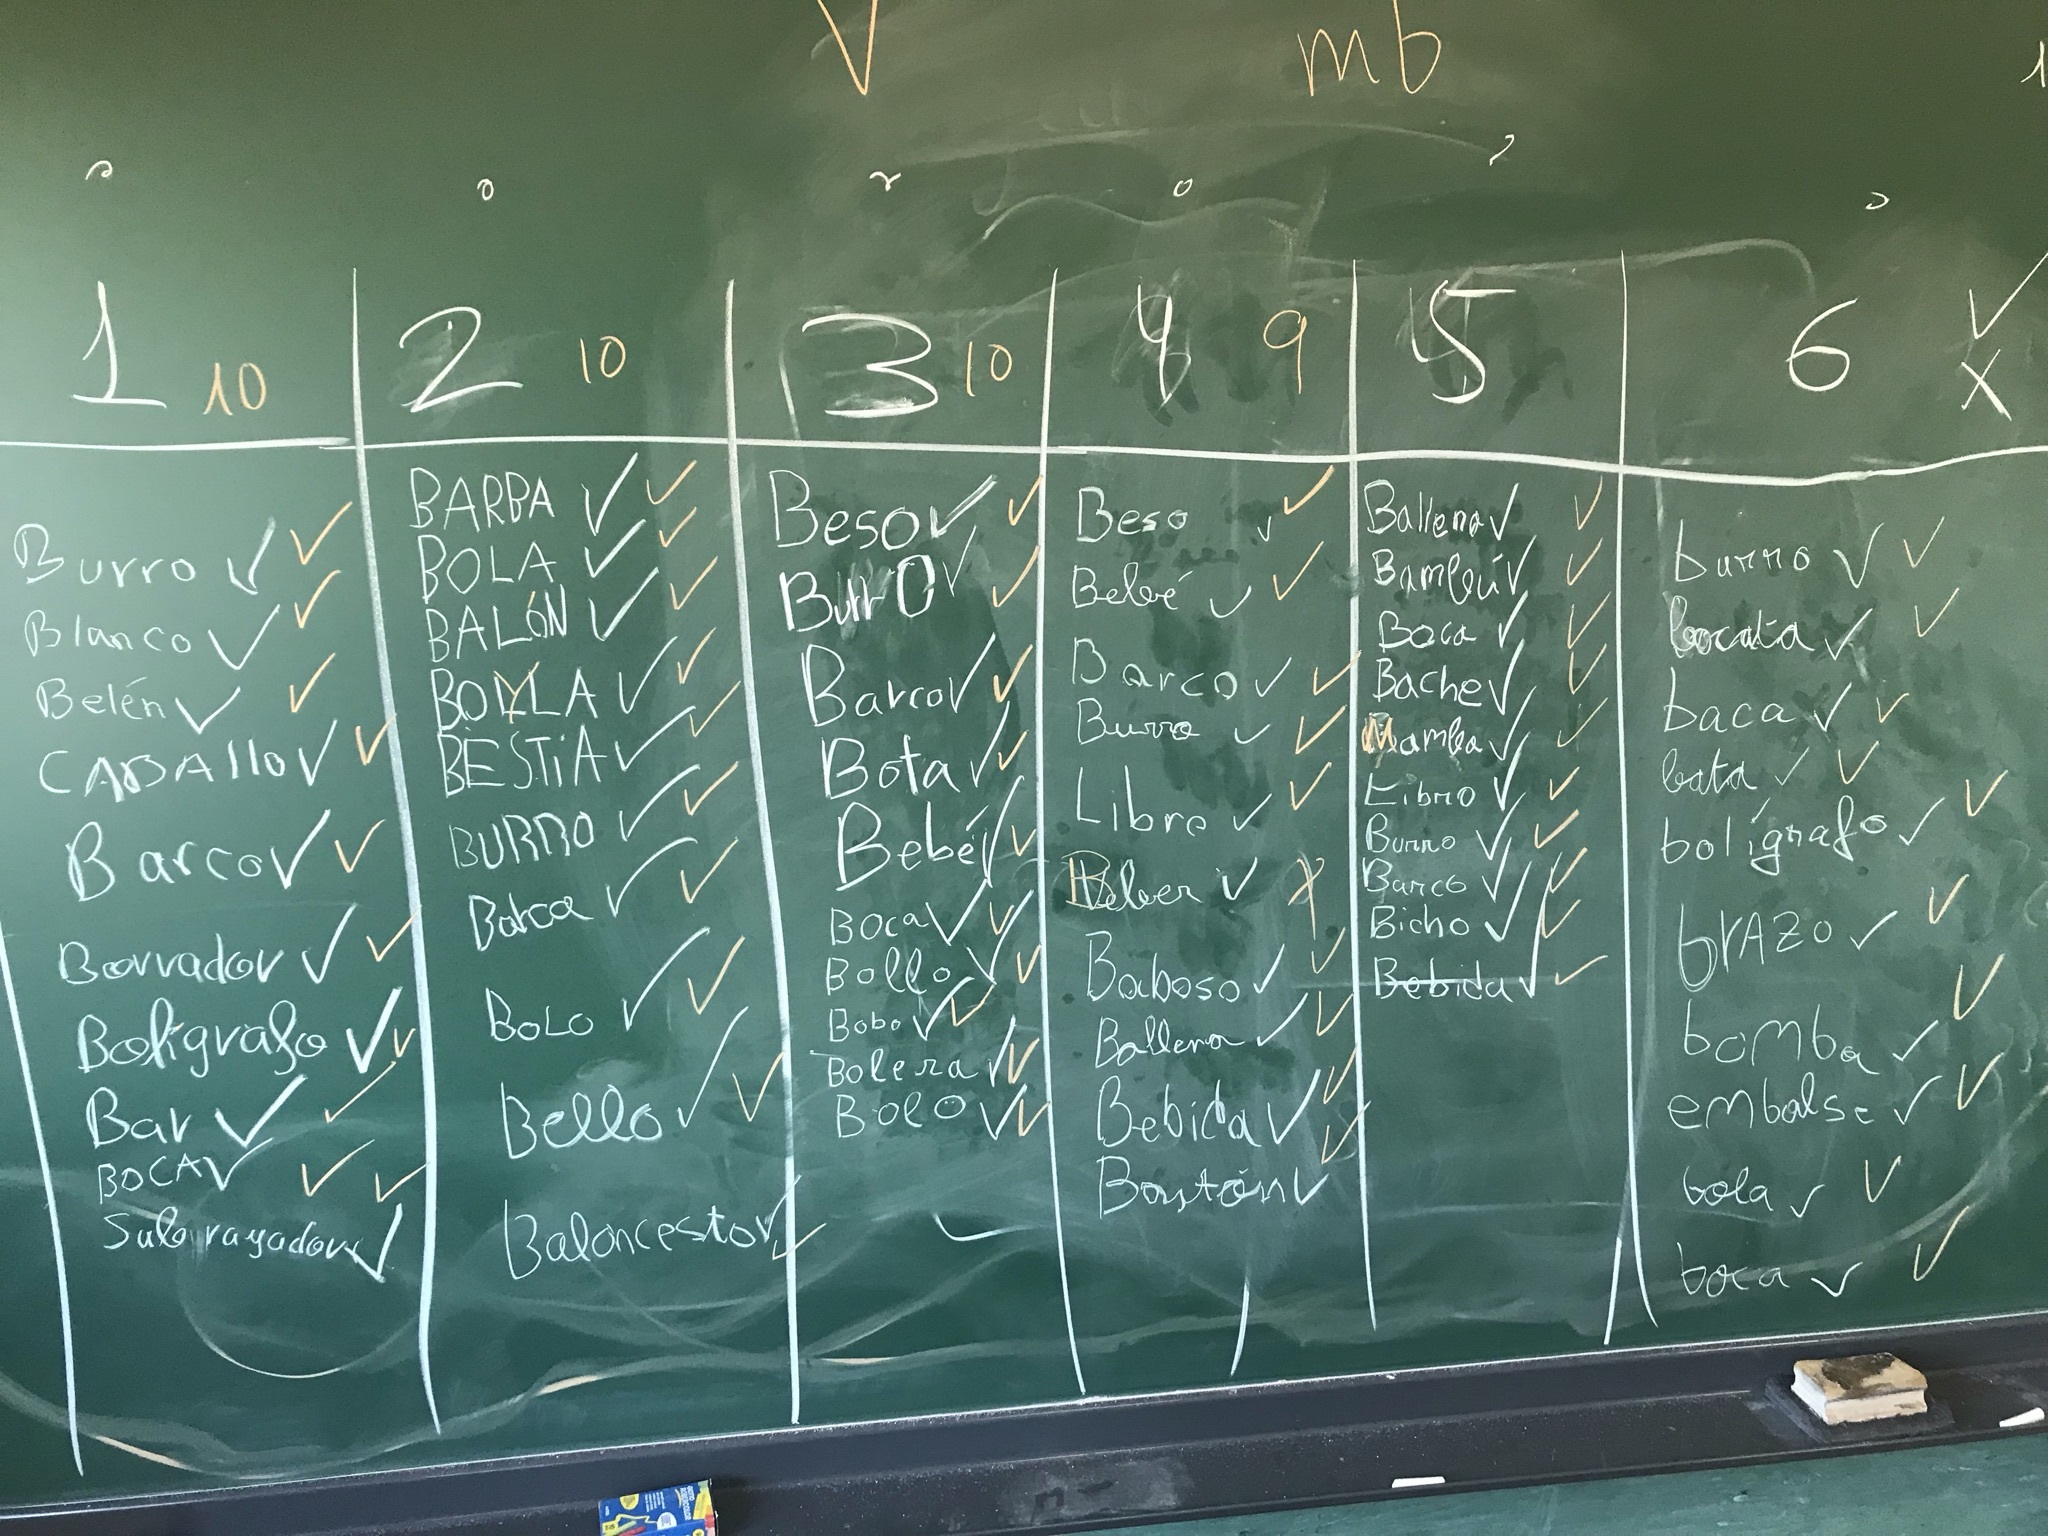 V mb
1 10
Burro
Blanco
Belén
CABAllo
Barco
Borrador
Bolígrafo
Bar
BOCA
Subrayador
2 10
BARBA
BOLA
BALÓN
BOYA
BESTiA
BURRO
BOLO
Bello
Baloncesto
3 10
Beso
BurrO
Barco
Bota
Bebé
Boca
Bollo
Bobo
Bolera
BOLO
4 9
Beso
Bebé
Barco
Burro
Libro
Beber
Baboso
Ballena
Bebida
Bastón
5
Ballena
Bambú
Boca
Bache
Mamba
Libro
Burro
Barco
Bicho
Bebida
6
burro
bocata
baca
bata
bolígrafo
brAZO
bomba
embalse
bola
boca